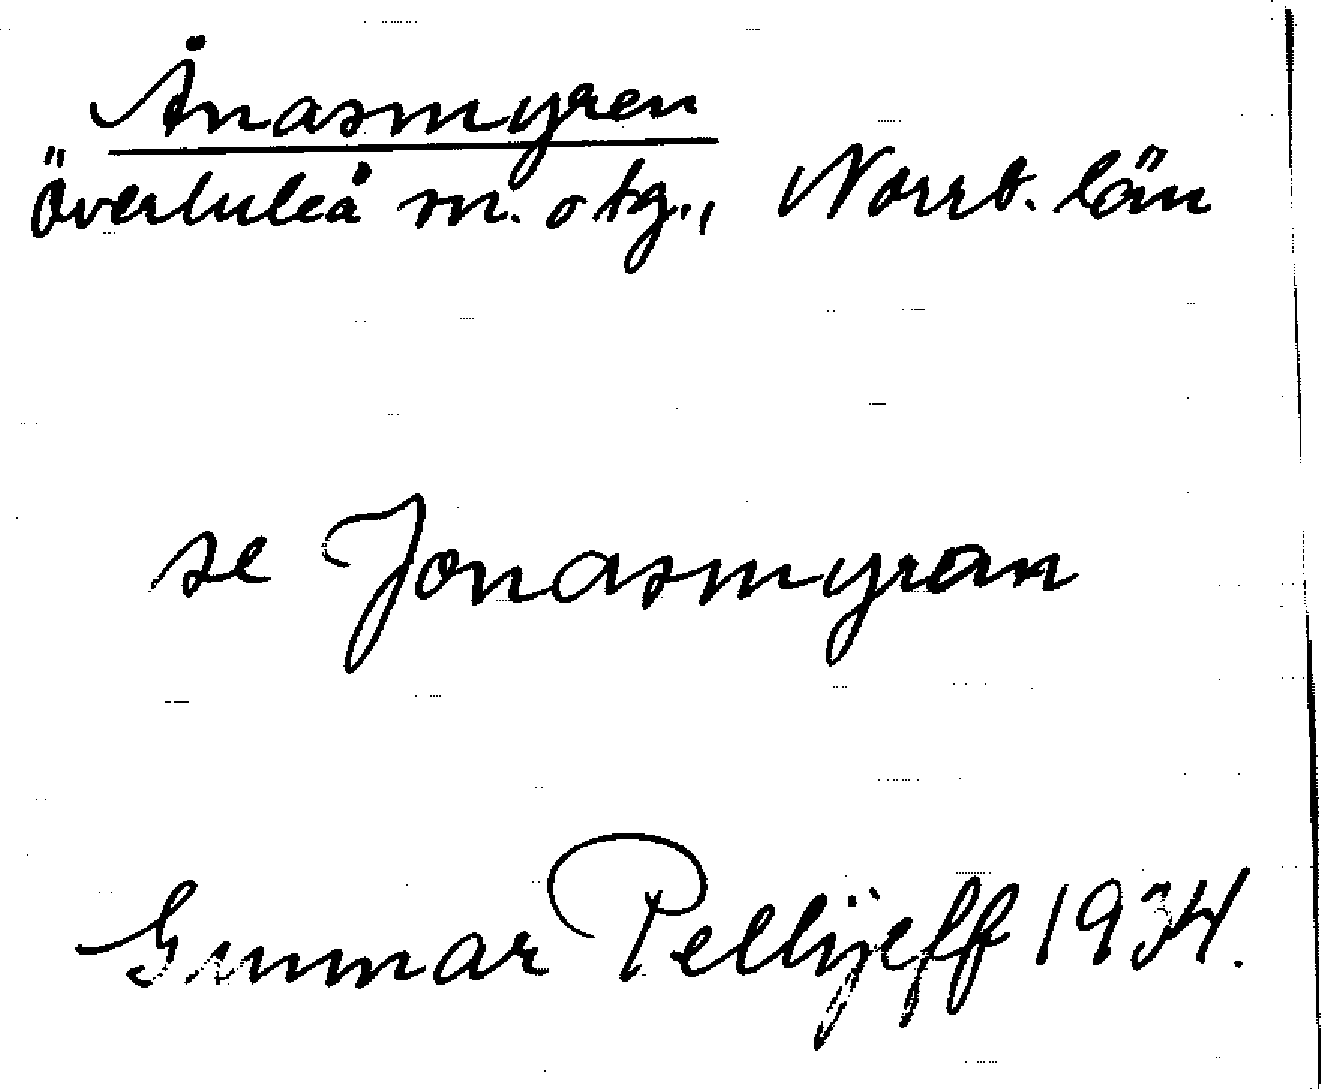 Ånasmyren
Överluleå sn. o tg., Norrb. län
se Jonasmyran
Gunnar Pellijeff 1934.